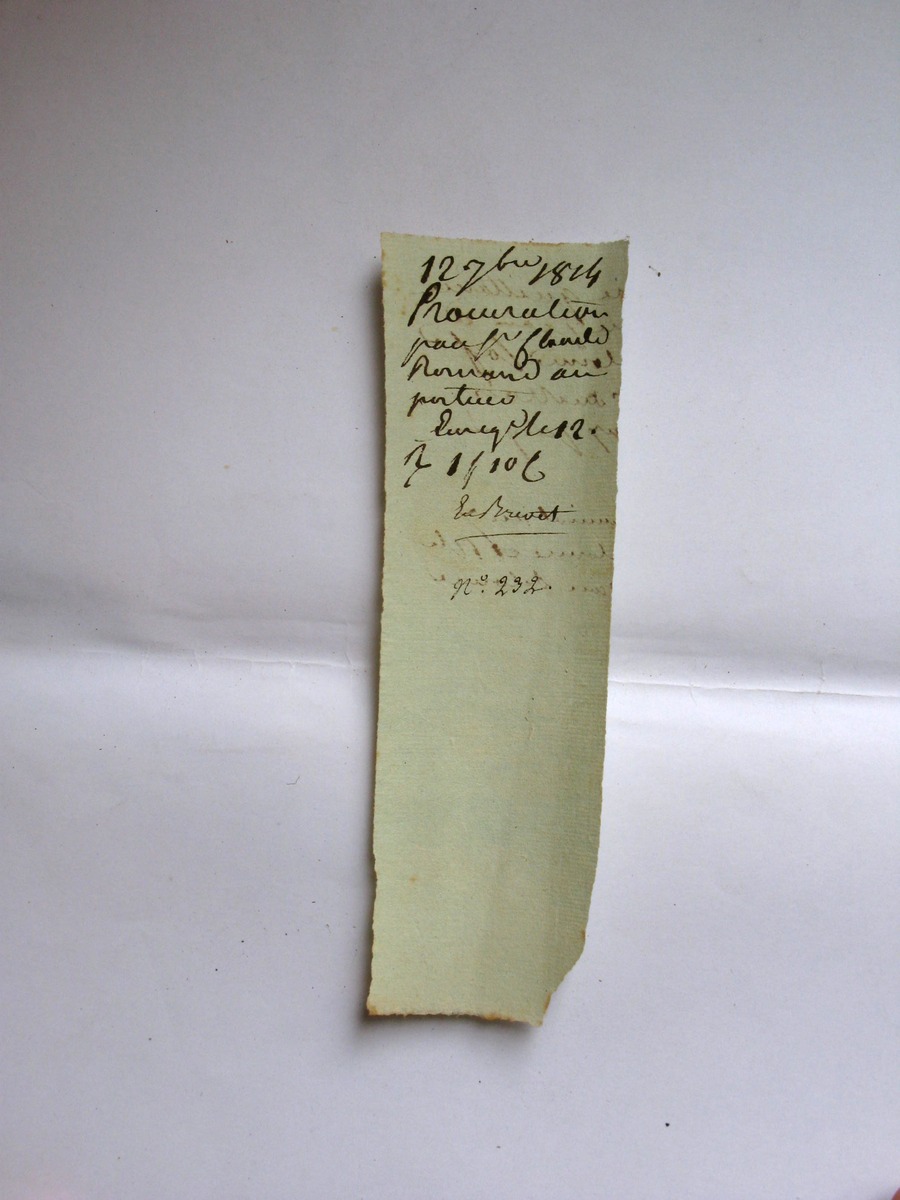 12 7bre 1814
Procuration
par Sr Claude
Romand au
porteur
Enregré le 12.
R 1f 10c
En Brevet
No. 232.